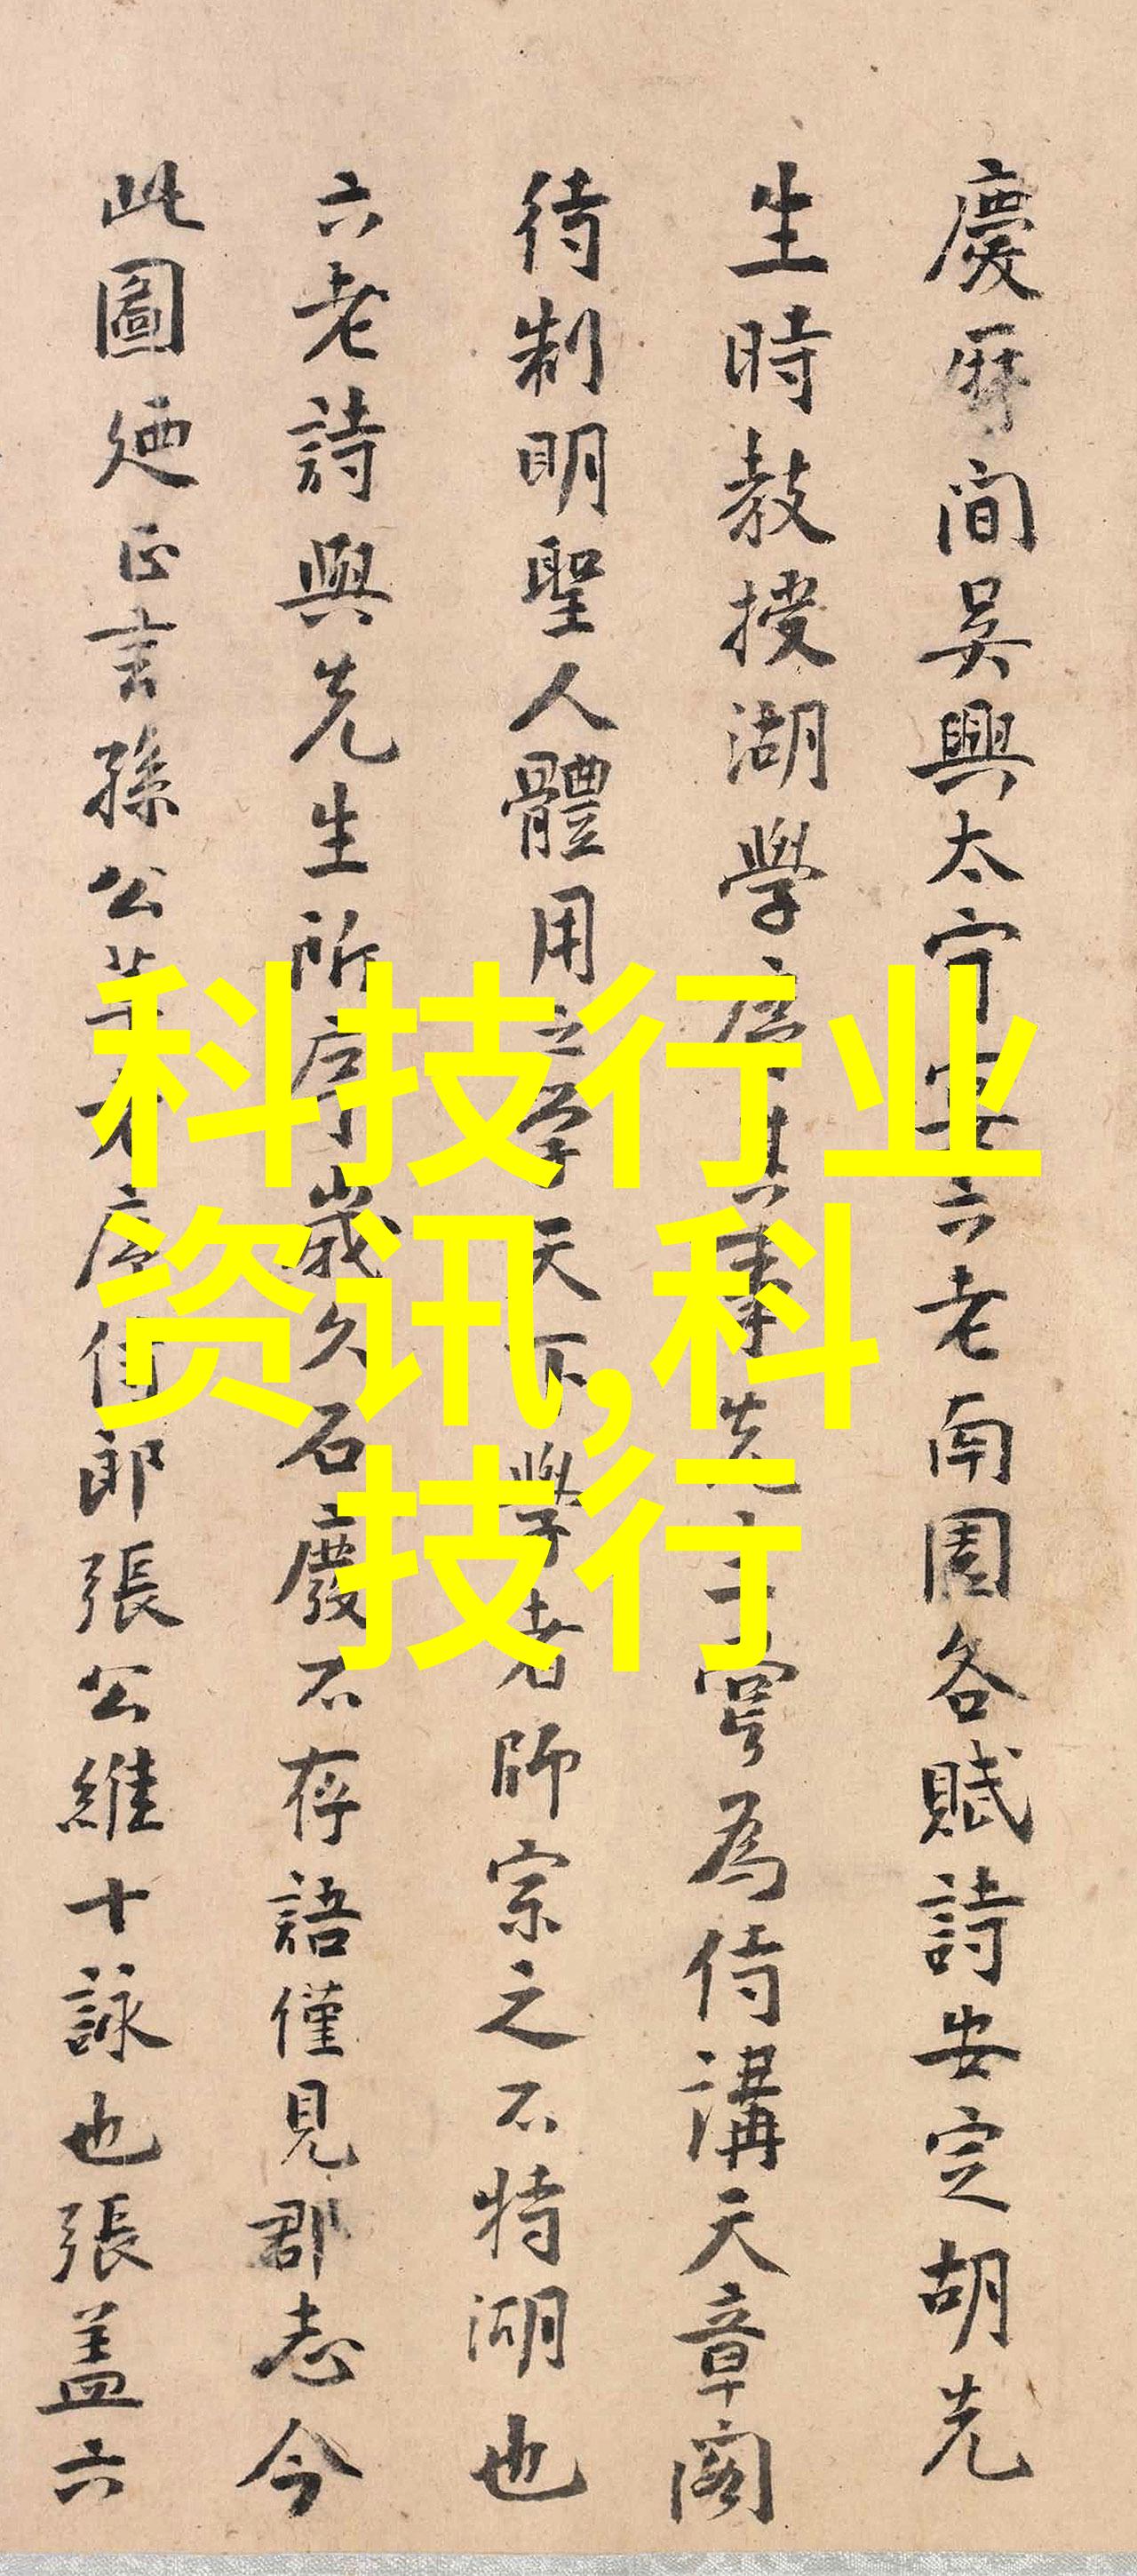 慶曆間吳興太守宴六老南園各賦詩安定胡先
生時教授湖學序其事先生諱為侍講天章閣
待制明聖人體用之學天下學者師宗之不特湖也
六老詩與先生所序歲久石廢不存語僅見郡志今
此圖廼正言孫公莘老序侍郎張公維十詠也張蓋六
科技行业
资讯,科
技行